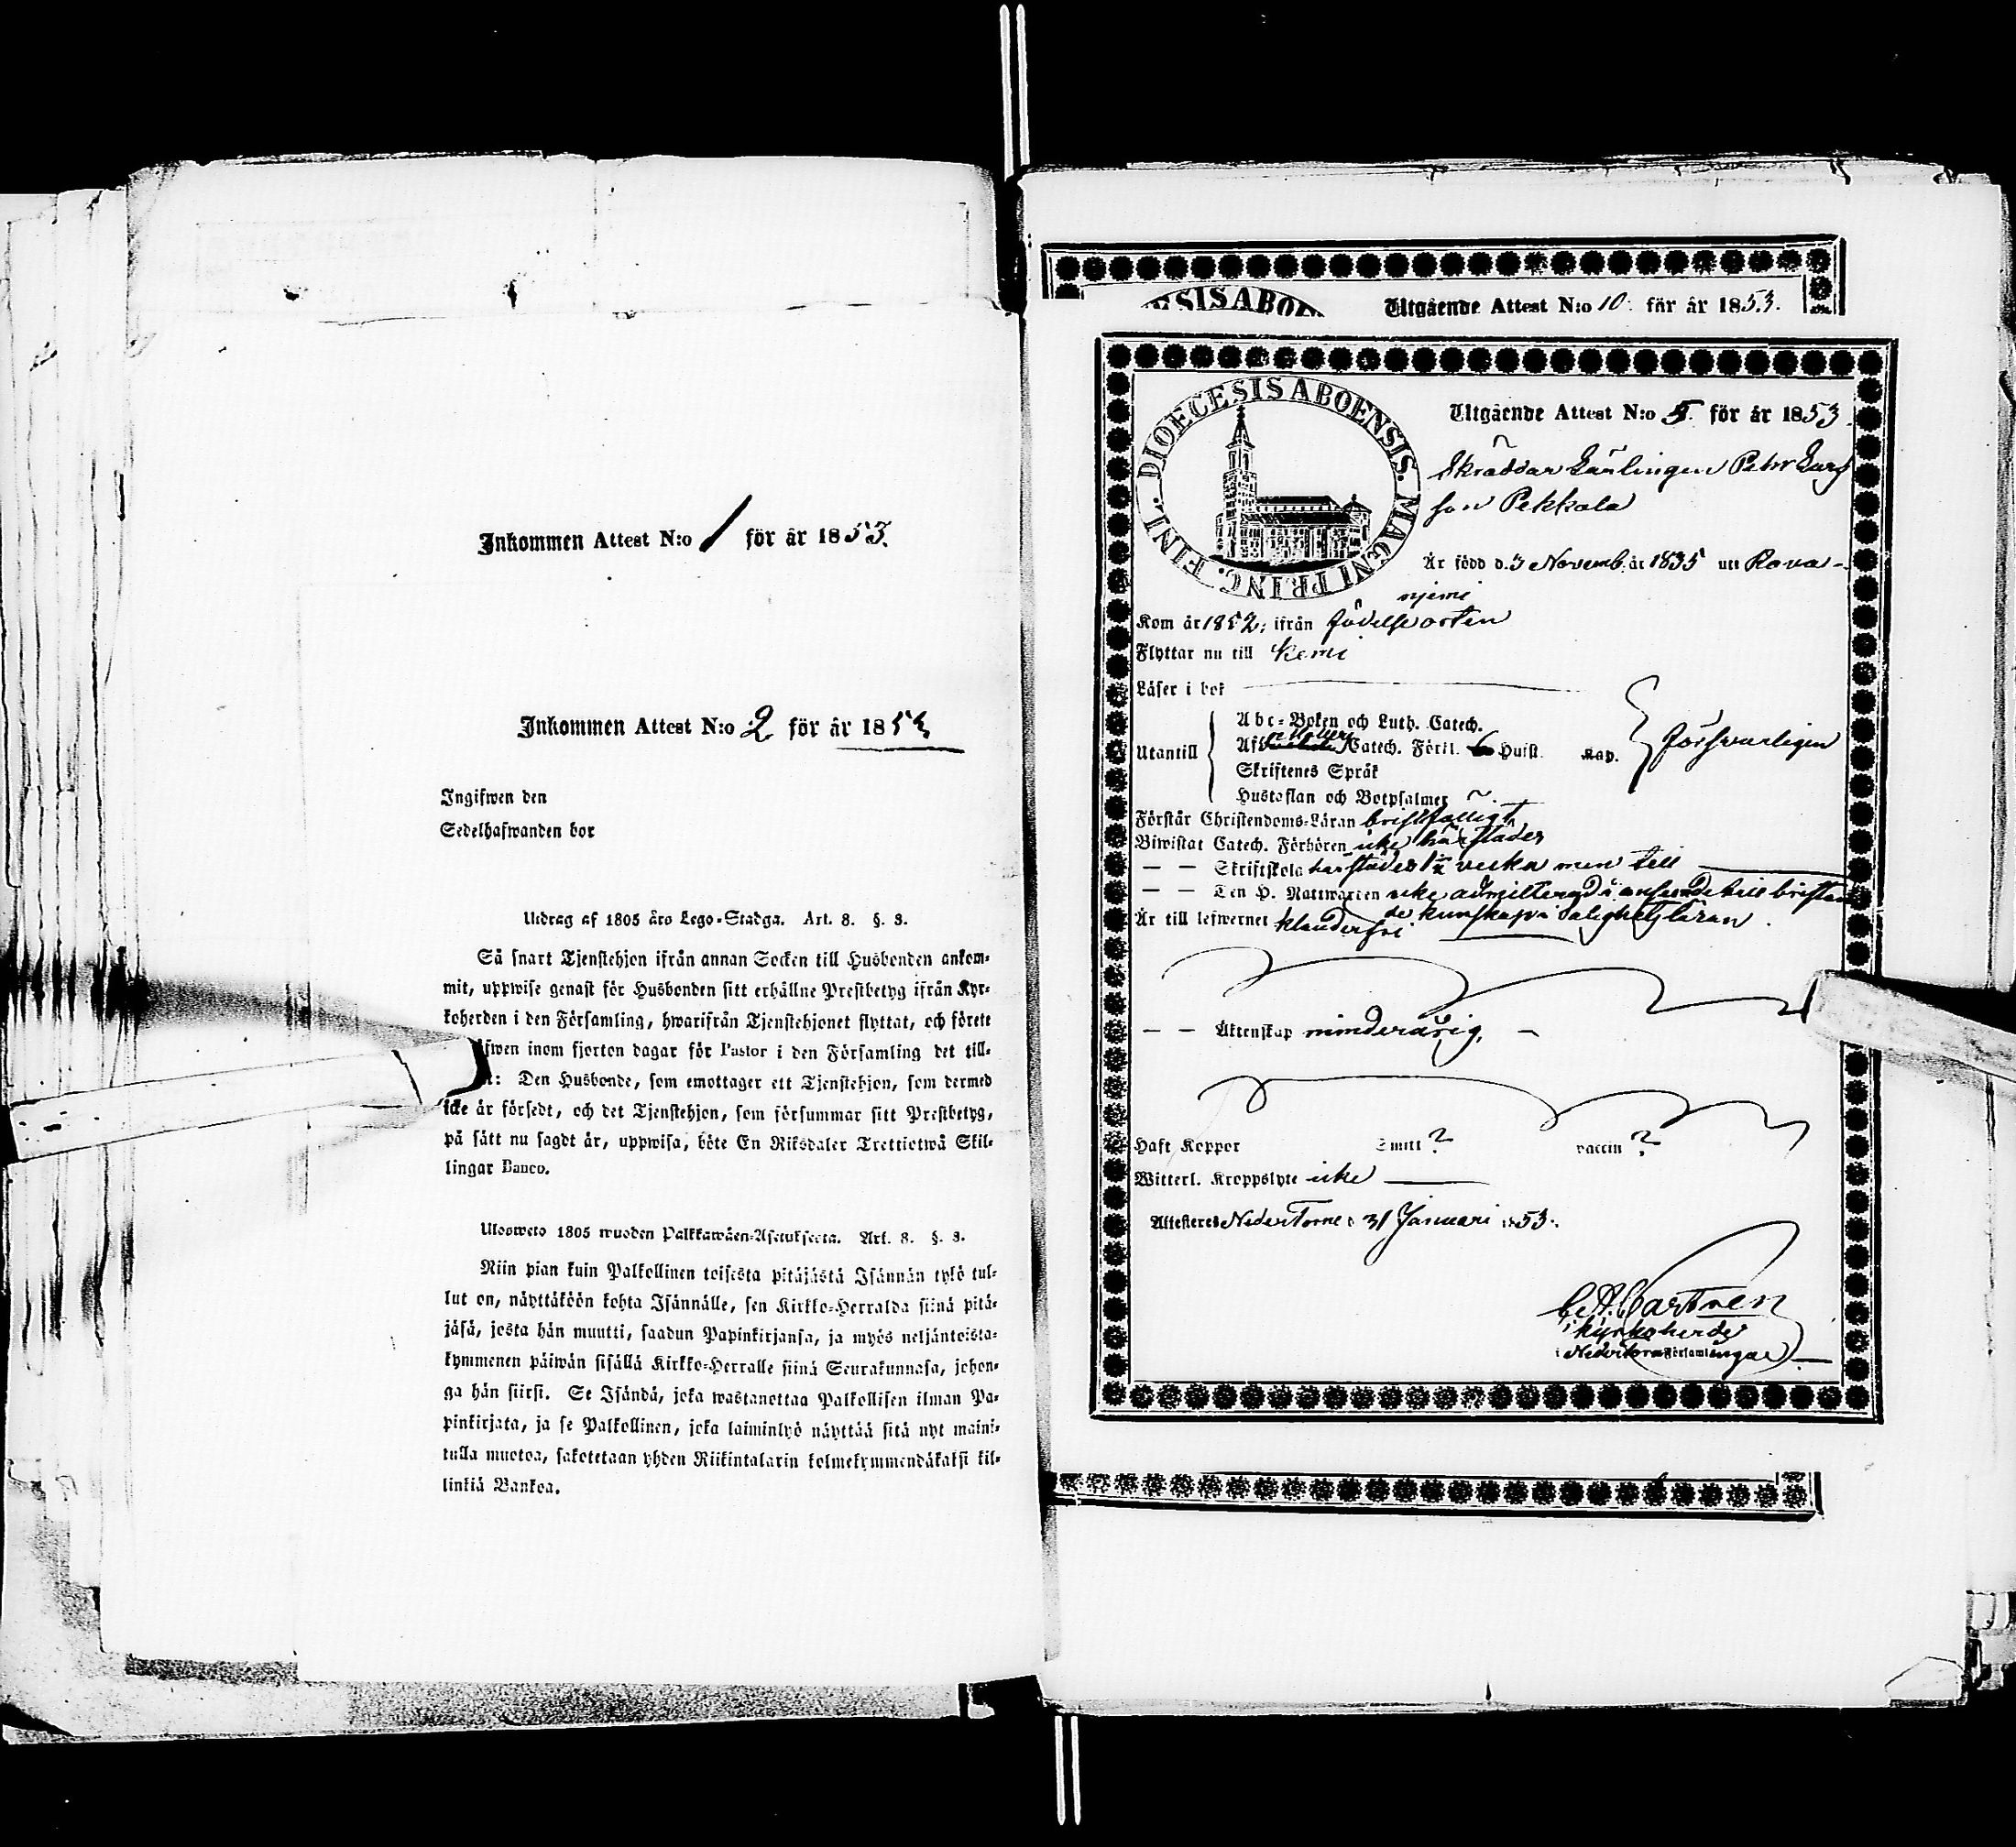 Inkommen Attest N:o 1 för år 1853.
Inkommen Attest N:o 2 för år 1853
Ingifwen den
Sedelhafwanden bor
Utdrag af 1805 års Lego-Stadga. Art. 8. §. 3.
Så snart Tjenstehjon ifrån annan Socken till Husbonden ankom-
mit, uppwise genast för Husbonden sitt erhållne Prestbetyg ifrån Kyr-
koherden i den Församling, hwarifrån Tjenstehjonet flyttat, och förete
fwen inom fjorton dagar för Pastor i den Församling det till-
Den Husbonde, som emottager ett Tjenstehjon, som dermed
icke är försedt, och det Tjenstehjon, som försummar sitt Prestbetyg,
på sätt nu sagdt är, uppwisa, böte En Riksdaler Trettiotwå Skil-
lingar Banco.
Ulosweto 1805 wuoden Palkkawäen-Asetuksesta. Art. 8. §. 3.
Niin pian kuin Palkollinen toisesta pitäjästä Isännän tykö tul-
lut on, näyttäköön kohta Isännälle, sen Kirkko-Herralda siinä pitä-
jäsä, josta hän muutti, saadun Papinkirjansa, ja myös neljäntoista-
kymmenen päiwän sisällä Kirkko-Herralle siinä Seurakunnasa, johon-
ga hän siirsi. Se Isändä, joka wastanottaa Palkollisen ilman Pa-
pinkirjata, ja se Palkollinen, joka laiminlyö näyttää sitä nyt maini-
tulla muotoa, sakotetaan yhden Riikintalarin kolmekymmendäkaksi kil-
linkiä Bankoa.
ESIS ABOE
Utgående Attest N:o 10. för år 1853.
DIOECESIS ABOENSIS. MAGNI PRINC. FINL.
Utgående Attest N:o 5. för år 1853.
Skräddar Lärlingen Petter Lars
son Pekkala
Är född d. 3 Novemb. år 1835 uti Rova-
njemi
Kom år 1852; ifrån födelseorten
Flyttar nu till Kemi
Läser i bok
Utantill
Abc-Boken och Luth. Catech.
Catech. Förkl. Huist. Kap. försvarligen
Skriftenes Språk
Hustaflan och Botpsalmer
Förstår Christendoms-Läran bristfälligt
Biwistat Catech. Förhören icke härstädes
— — Skriftskola härstädes 1½ vecka men till
— — Den H. Nattwarden icke admitterad i anseende till bristan
de kunskap i Salighetsläran.
Är till lefwernet klanderfri
— — Äktenskap minderårig,
Haft Koppor Smitt ? vaccin ?
Witterl. Kroppslyte icke
Attesteres Neder Torne d 31 Januari 1853.
C. A. Castrén
Kyrkoherde
i Nedertorneå Församlingar